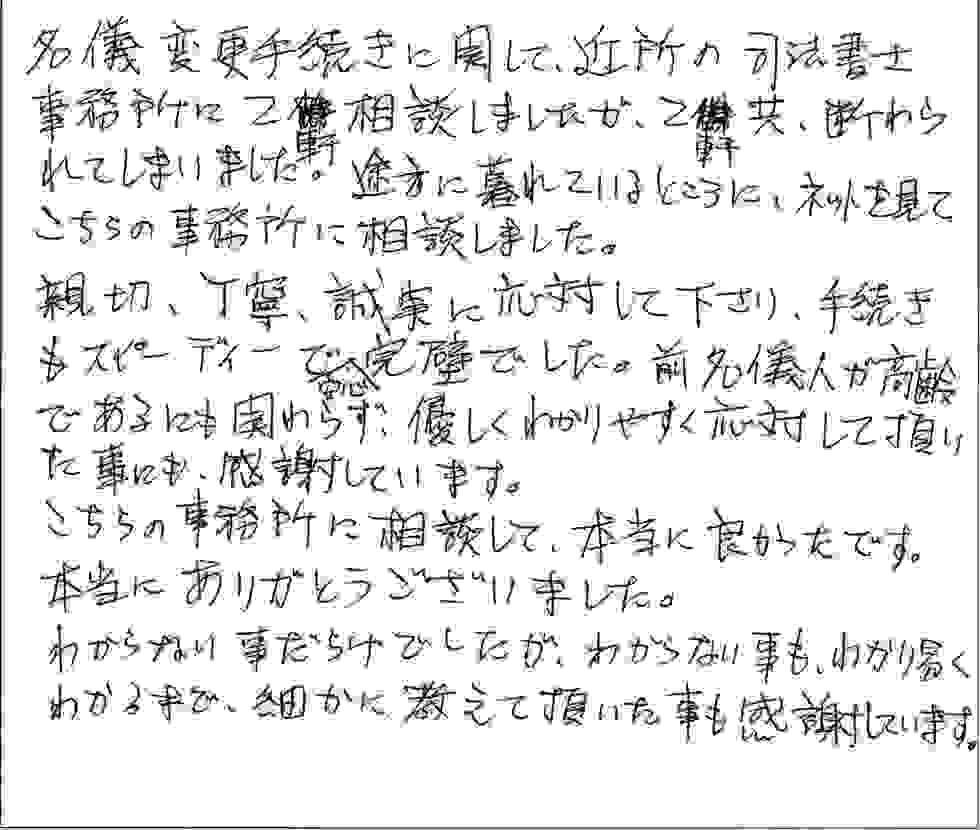 名儀変更手続きに関して、近所の司法書士
事務所に2軒相談しましたが、2軒共、断わら
れてしまいました。途方に暮れているところに、ネットを見て
こちらの事務所に相談しました。
親切、丁寧、誠実に応対して下さり、手続き
もスピーディーで安心、完璧でした。前名儀人が高齢
であるにも関わらず、優しくわかりやすく応対して頂い
た事にも、感謝しています。
こちらの事務所に相談して、本当に良かったです。
本当にありがとうございました。
わからない事だらけでしたが、わからない事も、わかり易く
わかるまで、細かに教えて頂いた事も感謝しています。